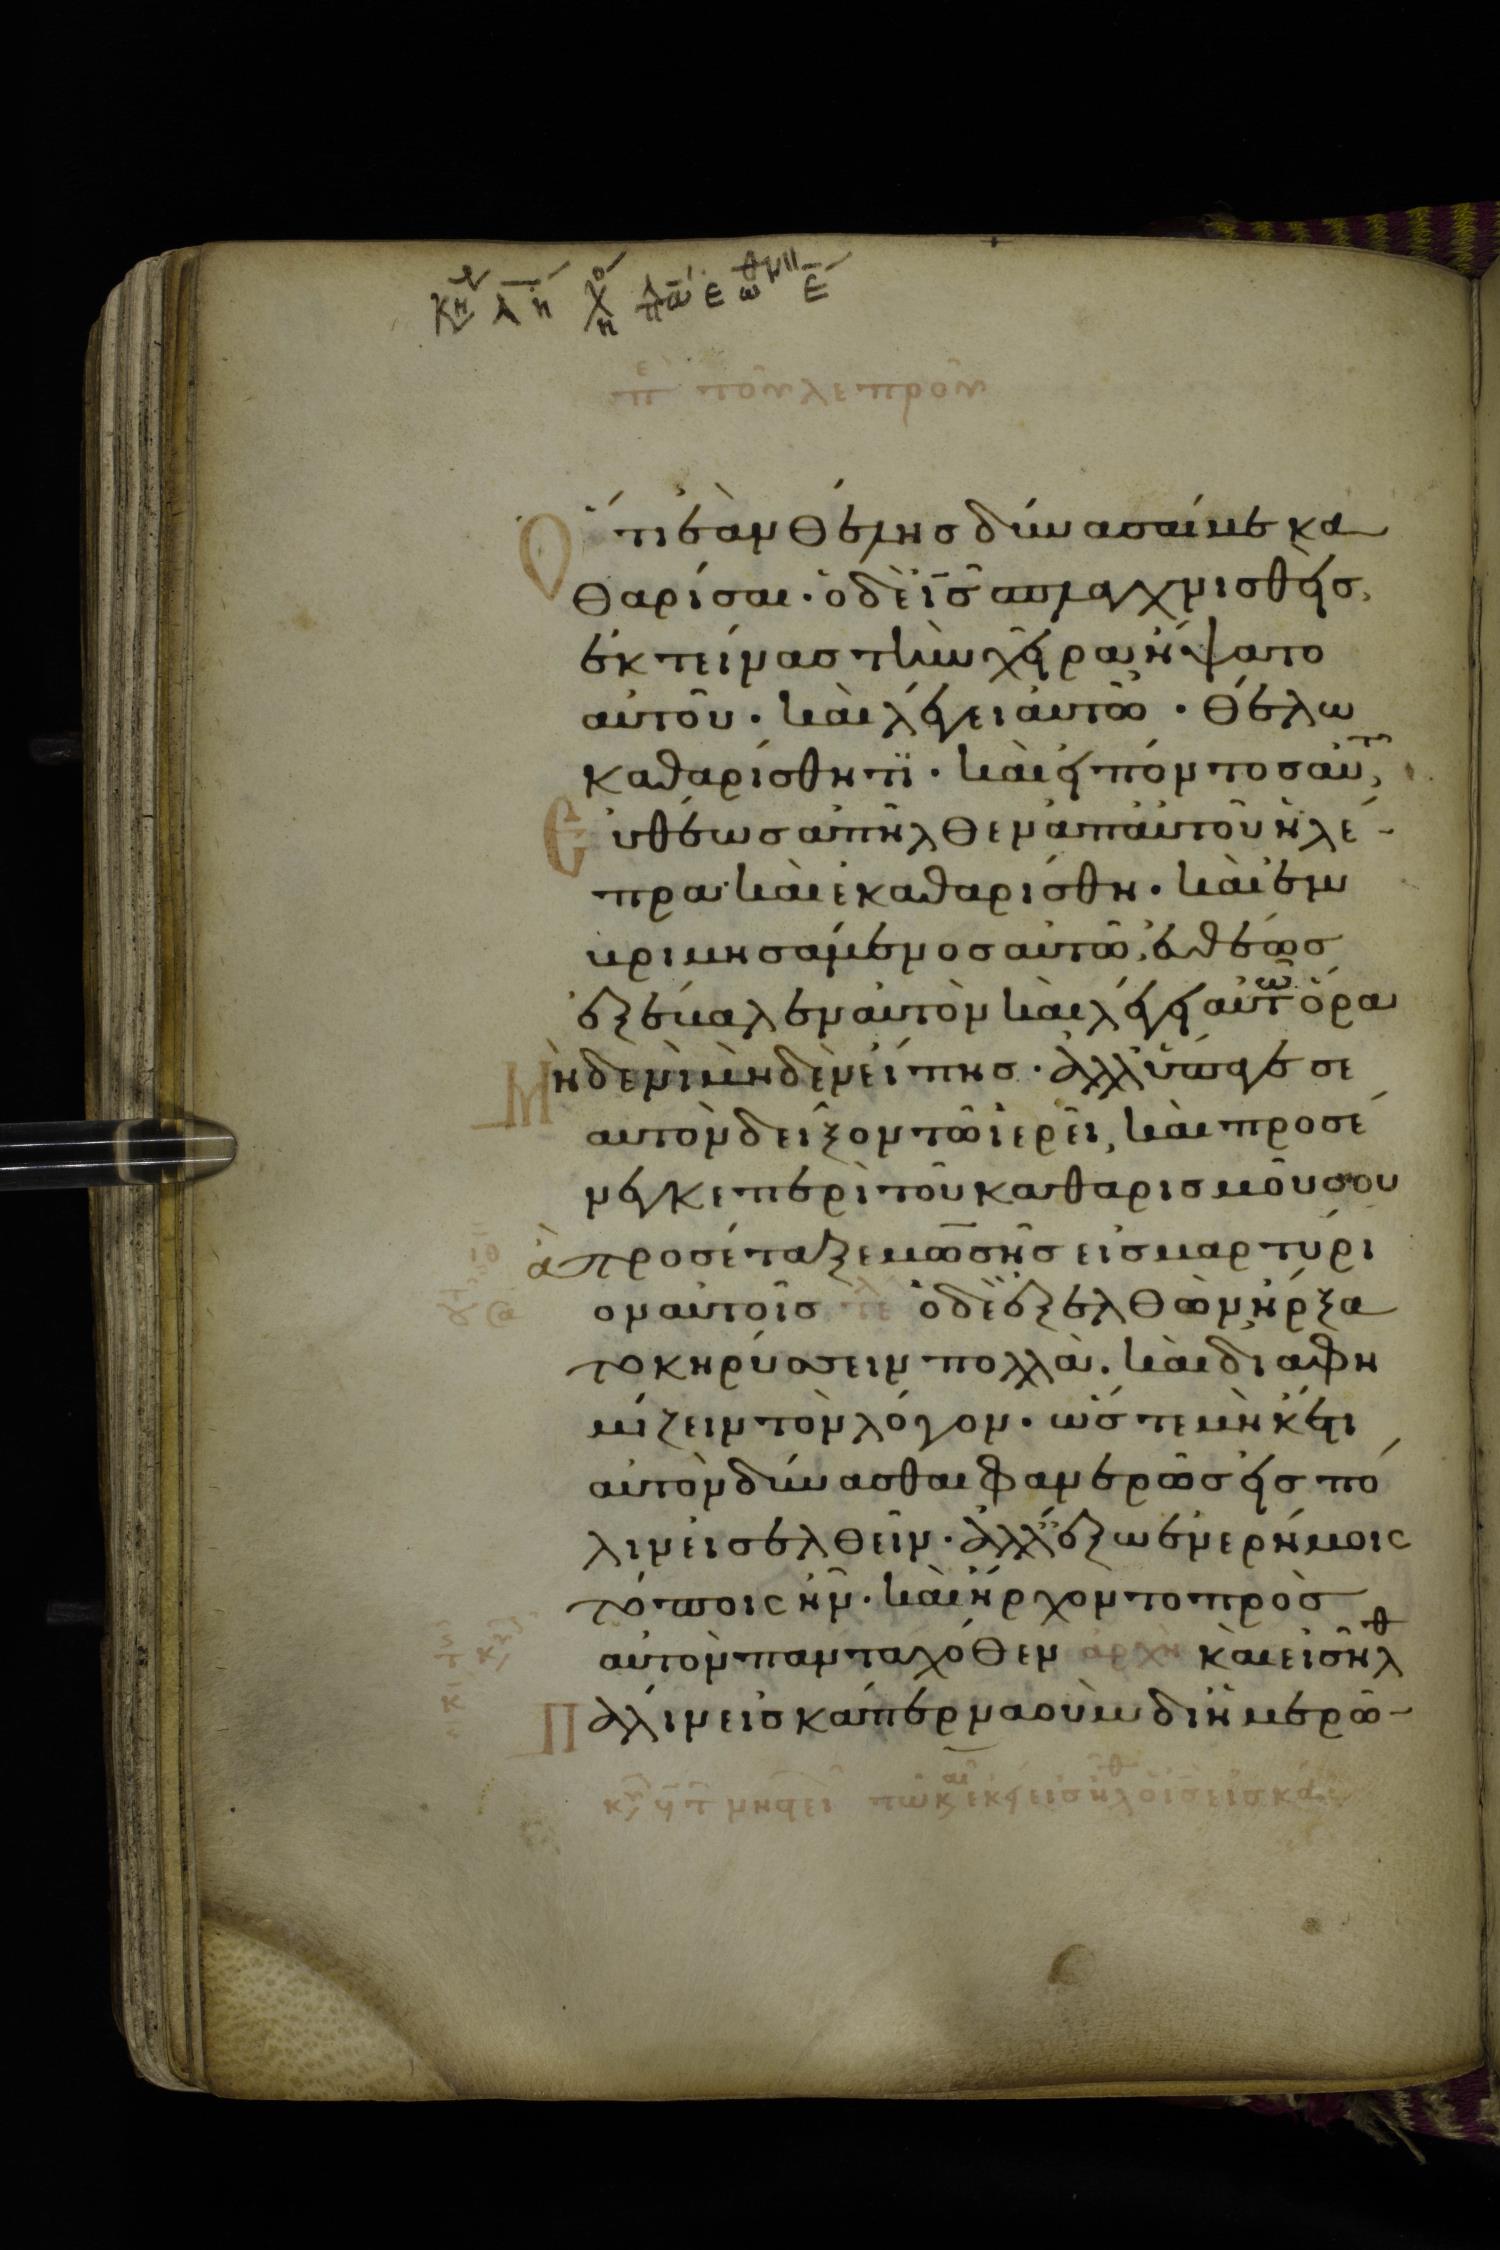 π ε τοῦ λεπροῦ
Ὅτι ἐὰν θέλησ δύνασαί με κα
θαρίσαι· ὁ δὲ ῑσ̄ σπλαγχνισθεὶσ,
ἐκτείνασ τὴν χεῖρα ἥψατο
αὐτοῦ· καὶ λέγει αὐτῶ· θέλω
καθαρίσθητϊ· καὶ εἰπόντοσ αὐτ,
Εὐθέωσ ἀπῆλθεν ἀπ αὐτοῦ ἡ λέ-
πρα· καὶ ἐκαθαρίσθη· καὶ ἐμ
βριμησάμενοσ αὐτῶ, εὐθέωσ
ἐξέβαλεν αὐτὸν καὶ λέγει αὐτῶ ὅρα
Μηδενὶ μηδὲν εἴπησ· ἀλλ ὕπαγε σε
αυτὸν δεῖξον τῶ ἱερεῖ, καὶ προσέ
νεγκε περὶ τοῦ καθαρισμοῦ σου
ἃ προσέταξε μωσῆσ εἰσ μαρτύρι
ον αὐτοῖσ τε ὁ δὲ ἐξελθὼν ἤρξα
το κηρύσσειν πολλὰ. καὶ διαφη
μίζειν τὸν λόγον· ὥστε μὴκέτι
αὐτὸν δύνασθαι φανερῶσ εἰσ πό
λιν εἰσελθεῖν· ἀλλ ἔξω ἐν ἐρήμοις
τόποις ἦν· καὶ ἤρχοντο πρὸσ
αὐτὸν πανταχόθεν ἀρχὴ καὶ εἰσῆλθ
Πάλιν εἰσ καπερναοὺμ δι ἡμερῶ-